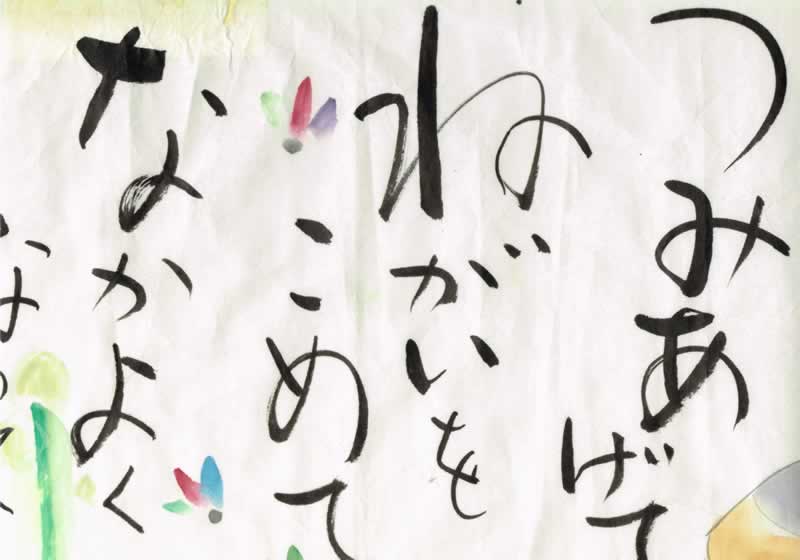 つみあげて
ねがいを
こめて
なかよく